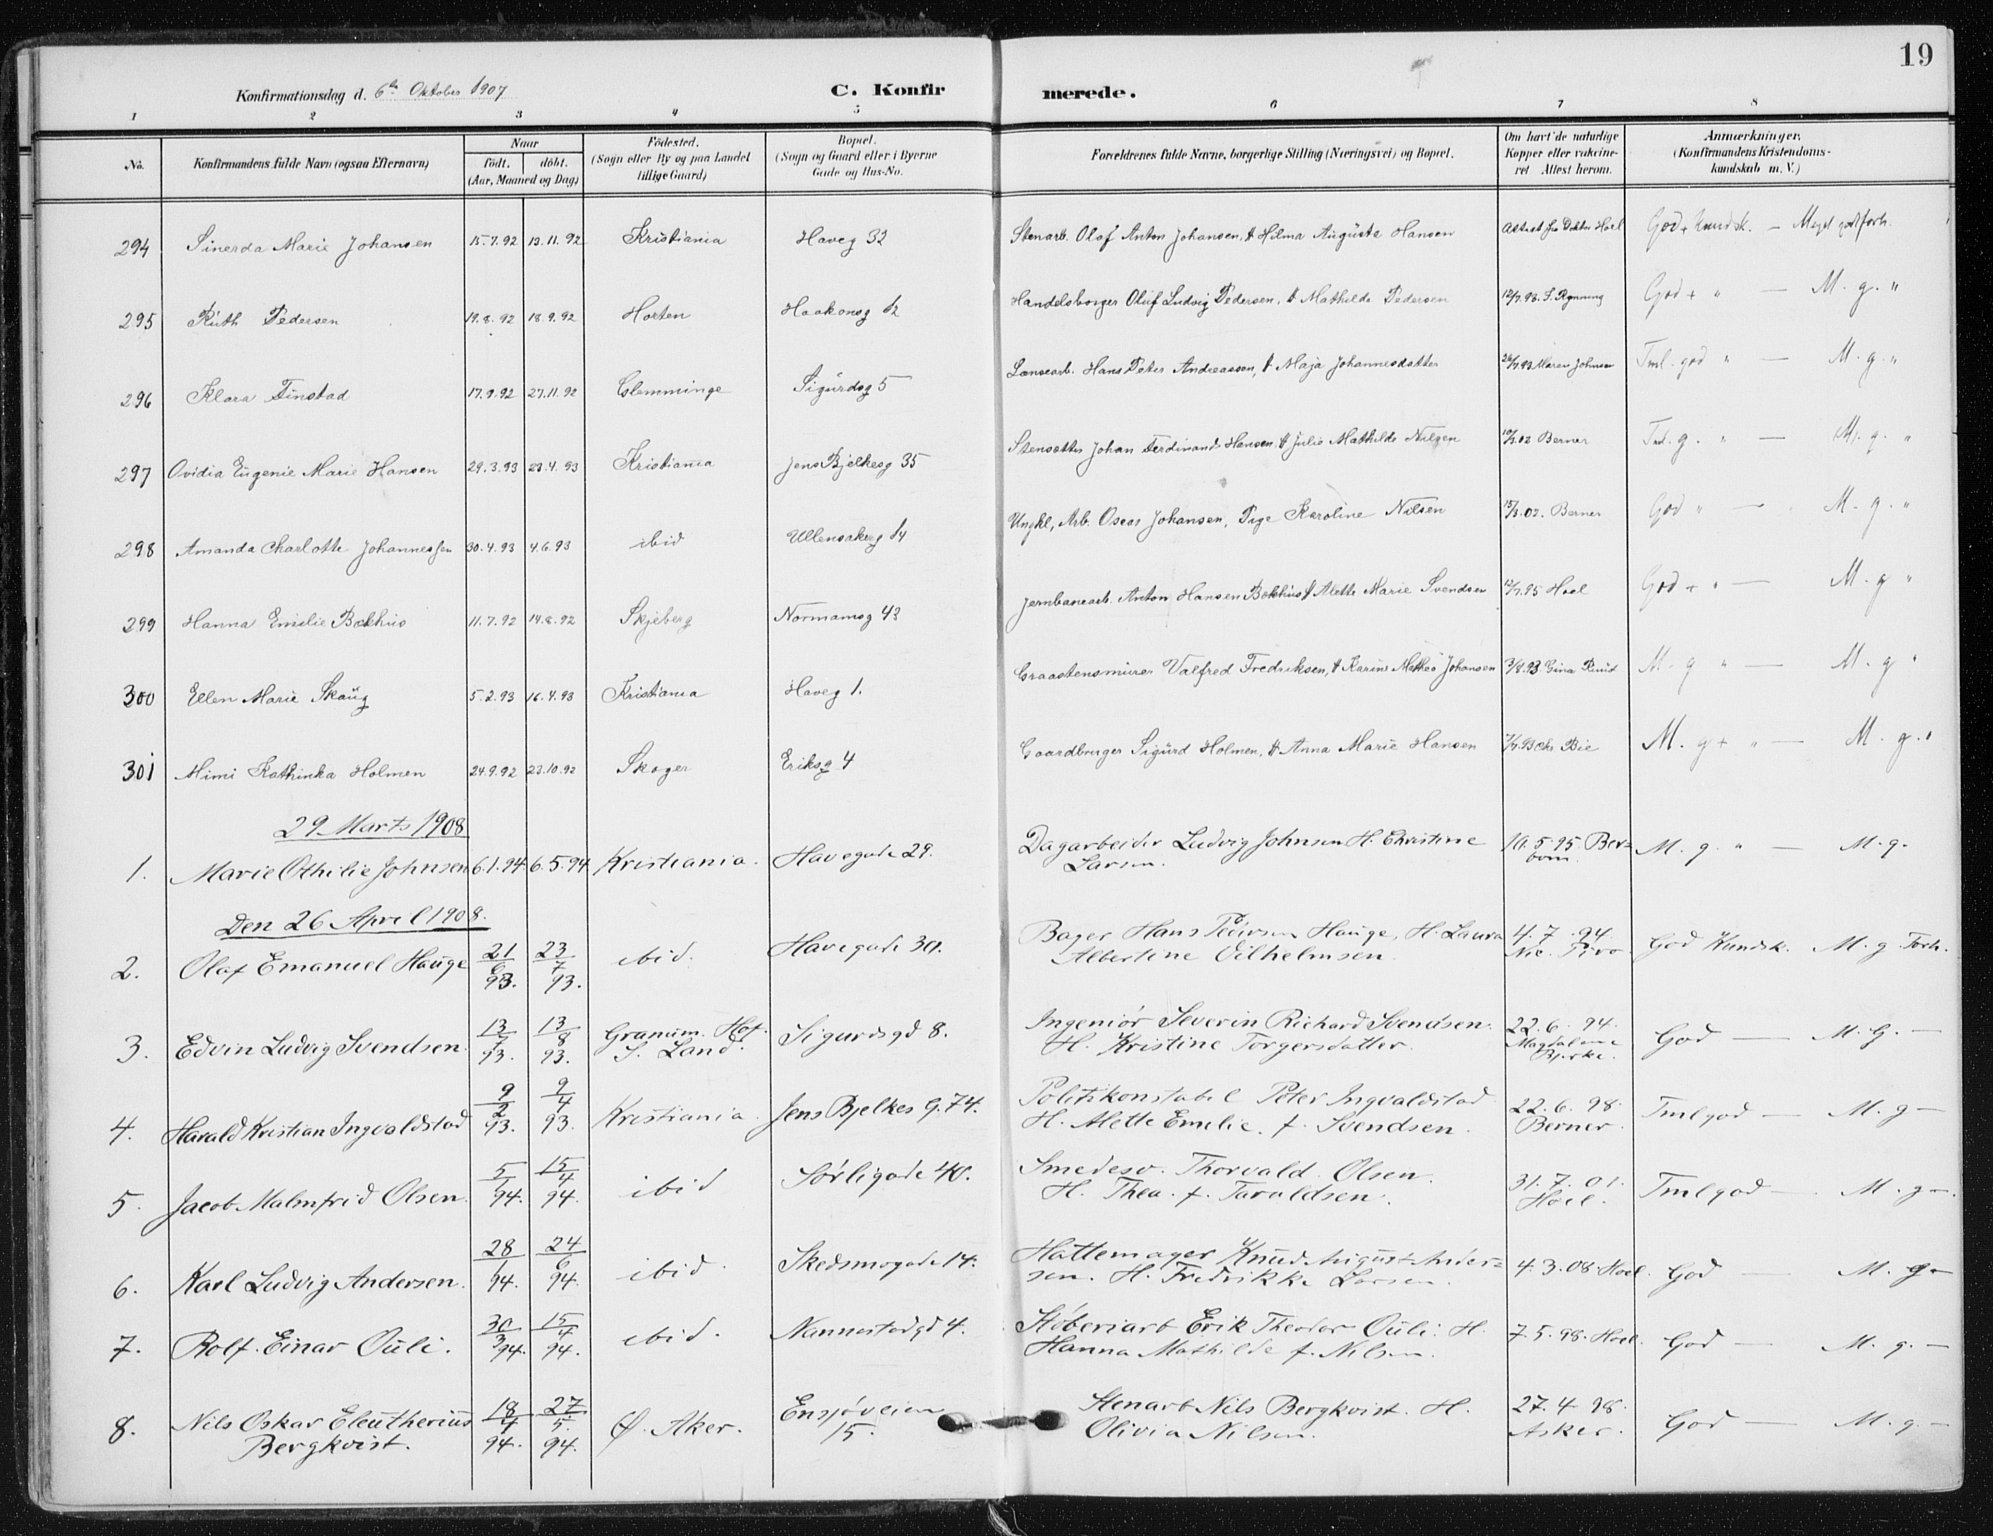 19
Konfirmationsdag d. 6te Oktober 1907
C. Konfirmerede.
1 2 3 4 5 6 7 8
No. Konfirmandens fulde Navn (ogsaa Efternavn) Naar födt. döbt. (Aar, Maaned og Dag) Födested. (Sogn eller By og paa Landet tillige Gaard) Bopæl. (Sogn og Gaard eller i Byerne Gade og Hus-No. Forældrenes fulde Navne, borgerlige Stilling (Næringsvei) og Bopæl. Om havt de naturlige Kopper eller vakcineret Attest herom. Anmærkninger. (Konfirmandens Kristendomskundskab m. V.)
294 Sinerda Marie Johansen 15.7.92 13.11.92 Kristiania Haveg 32 Stenarb. Olaf Anton Johansen, & Hilma Augusta Hansen Attest fra Doktor Hoel God + Kundsk. — Meget god forh.
295 Ruth Pedersen 19.8.92 18.9.92 Horten Haakonsg 12 Handelsborger Oluf Ludvig Pedersen, & Mathilde Pedersen S. Rynning God + " — M. g. "
296 Klara Finstad 17.9.92 27.11.92 Glemminge Sigurdsg 5 Lænsearb. Hans Peter Andreassen, & Maja Johannesdatter Maren Johnsen Tml. god " — M. g. "
297 Ovidia Eugenie Marie Hansen 29.3.93 23.4.93 Kristiania Jens Bjelkesg 35 Stensætter Johan Ferdinand Hansen & Julie Mathilde Nilsen Berner Tml. g. " — M. g. "
298 Amanda Charlotte Johannessen 30.4.93 4.6.93 ibid Ullensakerg 14 Ungkl, Arb. Oscar Johansen, Pige Karoline Nilsen 15/3.02. Berner God " — M. g. "
299 Hanna Emilie Bækhus 11.7.92 14.8.92 Skjeberg Normannsg 43 Jernbanearb. Anton Hansen Bækhus & Alette Marie Svendsen 12/7.95 Hoel God + " — M. g "
300 Ellen Marie Skaug 5.2.93 16.4.93 Kristiania Haveg 1. Graastensmurer Valfred Fredriksen, & Karine Mathea Johansen 3/8.93 Gina Ruud M. g " — M. g "
301 Mimi Kathinka Holmen 24.9.92 23.10.92 Skoger Eriksg 4 Gaardbruger Sigurd Holmen, & Anna Marie Hansen Bie M. g + " — M. g. "
29 Marts 1908
1. Marie Othilie Johnsen 6.1.94 6.5.94 Kristiania. Havegade 29. Dagarbeider Ludvig Johnsen H. Christine
Larsen. 10.5.95 Berbom. M. g. " — M. g.
Den 26 April 1908.
2. Olaf Emanuel Hauge 21/6 93. 23/7 93. ibid. Havegade 30. Bager Hans Peder Hauge, H. Laura
Albertine Vilhelmsen. 4.7.94. Nic. God Kundsk. M. g. Forh.
3. Edvin Ludvig Svendsen. 13/7 93. 13/8 93. Granum. Hof. S. Land. Sigurdsgd 8. Ingeniør Severin Richard Svendsen.
H. Kristine Torgersdatter. 22.6.94. Magdalene Bjerke. God — M. G. —
4. Harald Kristian Ingvaldstad 9/2 93. 9/4 93. Kristiania. Jens Bjelkes G. 74. Politikonstabel Peter Ingvaldstad
H. Alette Emelie. f. Svendsen. 22.6.98. Berner. Tmlgod — M. g —
5. Jacob Malmfrid Olsen. 5/1 94. 15/4 94. ibid Sørligade 40. Smedesv. Thorvald. Olsen.
H. Thea. f. Taraldsen. 31.7.01. Hoel. Tmlgod — M. g —.
6. Karl Ludvig Andersen. 28/1 94. 24/6 94. ibid. Skedsmogade 14. Hattemager Knud August Andersen.
H. Fredrikke Larsen. 4.3.08. Hoel. God — M. g —
7. Rolf. Einar Ouli. 30/3 94. 15/4 94. ibid. Nannestadgd 4. Støberiarb Erik Theodor Ouli. H.
Hanna Mathilde f. Nilsen. 7.5.98. Hoel. God — M. g. —
8. Nils Oskar Eleutherius
Bergkvist. 18/4 94. 27/5. 94. Ø. Aker. Ensjøveien 15. Stenarb Nils Bergkvist. H.
Olivia Nilsen. 27.4 98. Asker. God — M. g. —